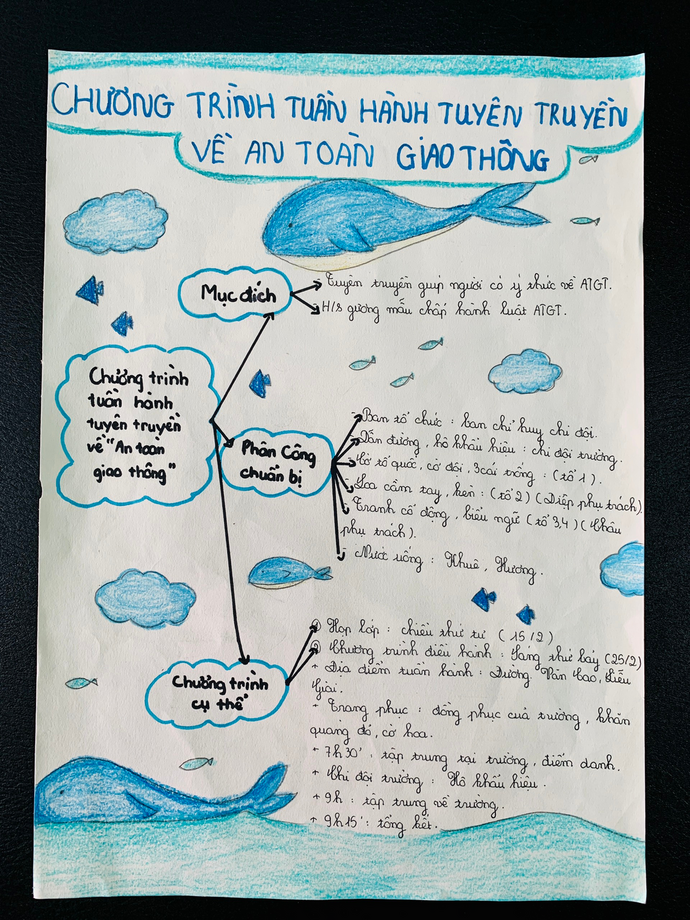 CHƯƠNG TRÌNH TUẦN HÀNH TUYÊN TRUYỀN
VỀ AN TOÀN GIAO THÔNG
Mục đích
- Tuyên truyền giúp người có ý thức về ATGT.
- H/s gương mẫu chấp hành luật ATGT.
Chương trình
tuần hành
tuyên truyền
về "An toàn
giao thông"
Phân Công
chuẩn bị
- Ban tổ chức : ban chỉ huy chi đội.
- Dẫn đường, hô khẩu hiệu : chi đội trưởng.
- Cờ tổ quốc, cờ đội, 3 cái trống : (tổ 1).
- Loa cầm tay, kèn : (tổ 2) (Diệp phụ trách)
- Tranh cổ động, biểu ngữ (tổ 3,4) (Châu
phụ trách).
- Nước uống : Khuê, Hương.
Chương trình
cụ thể
① Họp lớp : chiều thứ tư (15/2)
② Chương trình diễu hành : Sáng thứ bảy (25/2)
+ Địa điểm tuần hành : Đường Văn Cao, Liễu
Giai.
+ Trang phục : đồng phục của trường, khăn
quàng đỏ, cờ hoa.
+ 7h30' : tập trung tại trường, điểm danh.
+ Chi đội trưởng : Hô khẩu hiệu.
+ 9h : tập trung về trường.
+ 9h15' : tổng kết.